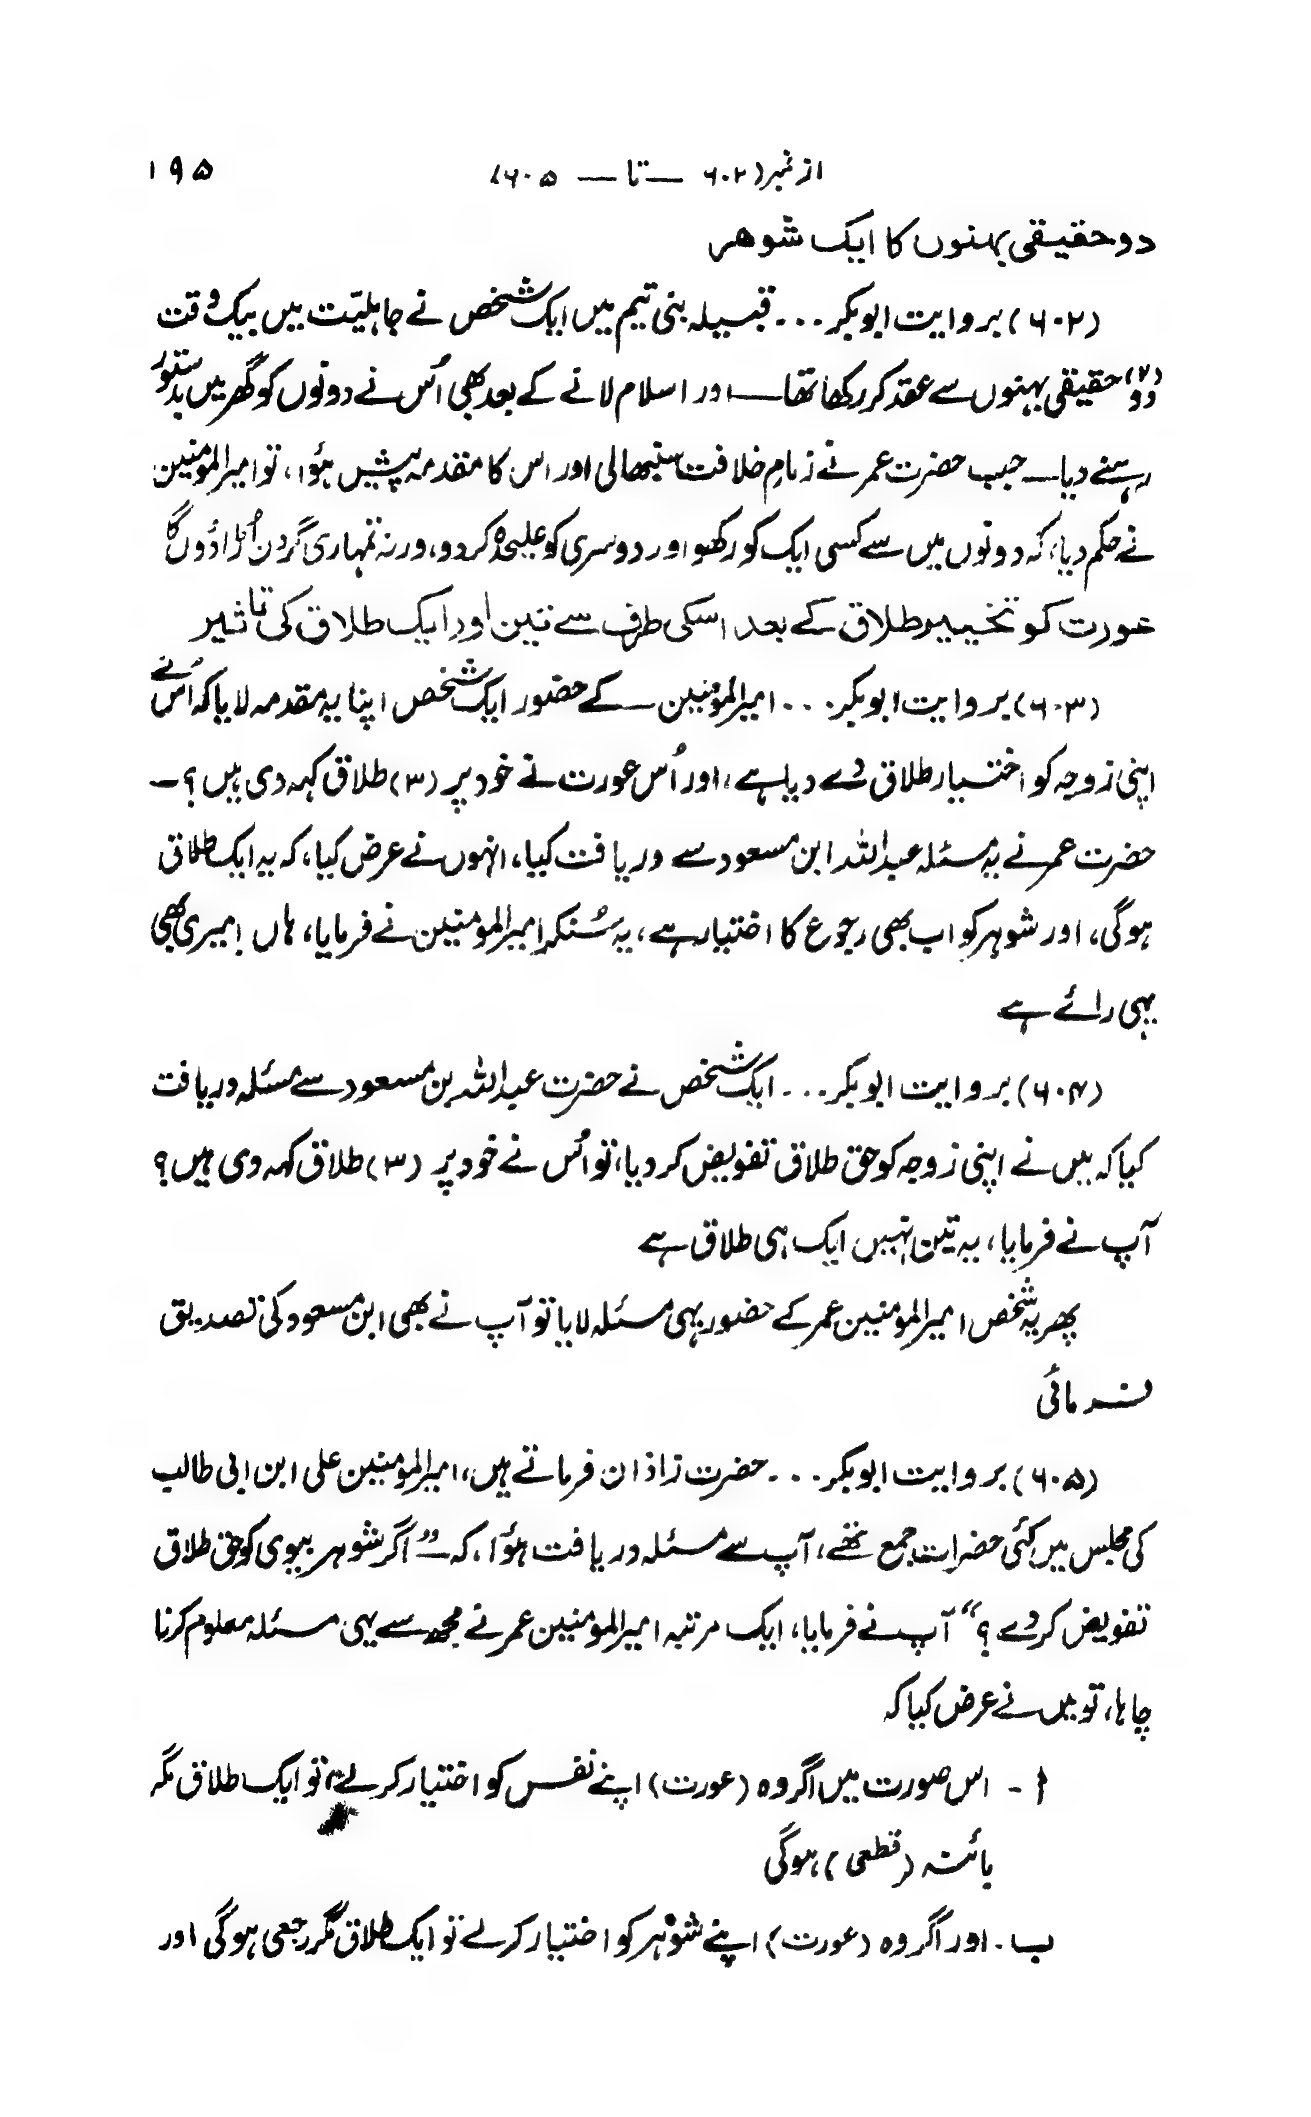 از نمبر (۶۰۲ — تا — ۶۰۵) ۱۹۵
دو حقیقی بہنوں کا ایک شوھر
(۶۰۲) بروایت ابوبکر ... قبیلہ بنی تیم میں ایک شخص نے جاہلیّت میں بیک وقت
دو(۲) حقیقی بہنوں سے عقد کر رکھا تھا — اور اسلام لانے کے بعد بھی اُس نے دونوں کو گھر میں بدستور
رہنے دیا — جب حضرت عمر نے زمامِ خلافت سنبھالی اور اس کا مقدمہ پیش ہؤا، تو امیرالمومنین
نے حکم دیا، کہ دونوں میں سے کسی ایک کو رکھو اور دوسری کو علیحدہ کر دو، ورنہ تمہاری گردن اُڑا دُوں گا
عورت کو تخییر طلاق کے بعد اسکی طرف سے تین اور ایک طلاق کی تاثیر
(۶۰۳) بروایت ابوبکر ... امیرالمومنین — کے حضور ایک شخص اپنا یہ مقدمہ لایا کہ اُس نے
اپنی زوجہ کو اختیار طلاق دے دیا ہے، اور اُس عورت نے خود پر (۳) طلاق کہہ دی ہیں ؟ —
حضرت عمر نے یہ مسئلہ عبداللہ ابن مسعود سے دریافت کیا، انہوں نے عرض کیا، کہ یہ ایک طلاق
ہوگی، اور شوہر کو اب بھی رجوع کا اختیار ہے، یہ سُنکر امیرالمومنین نے فرمایا، ہاں! میری بھی
یہی رائے ہے
(۶۰۴) بروایت ابوبکر ... ایک شخص نے حضرت عبداللہ بن مسعود سے مسئلہ دریافت
کیا کہ میں نے اپنی زوجہ کو حق طلاق تفویض کر دیا، تو اُس نے خود پر (۳) طلاق کہہ دی ہیں؟
آپ نے فرمایا، یہ تین نہیں ایک ہی طلاق ہے
پھر یہ شخص امیرالمومنین عمر کے حضور یہی مسئلہ لایا تو آپ نے بھی ابن مسعود کی تصدیق
فرمائی
(۶۰۵) بروایت ابوبکر ... حضرت زاذان فرماتے ہیں، امیرالمومنین علی ابن ابی طالب
کی مجلس میں کئی حضرات جمع تھے، آپ سے مسئلہ دریافت ہؤا، کہ — ”اگر شوہر بیوی کو حق طلاق
تفویض کر دے ؟“ آپ نے فرمایا، ایک مرتبہ امیرالمومنین عمر نے مجھ سے یہی مسئلہ معلوم کرنا
چاہا، تو میں نے عرض کیا کہ
أ - اس صورت میں اگر وہ (عورت) اپنے نفس کو اختیار کر لے، تو ایک طلاق مگر
بائنہ (قطعی) ہوگی
ب - اور اگر وہ (عورت) اپنے شوہر کو اختیار کر لے تو ایک طلاق مگر رجعی ہوگی اور